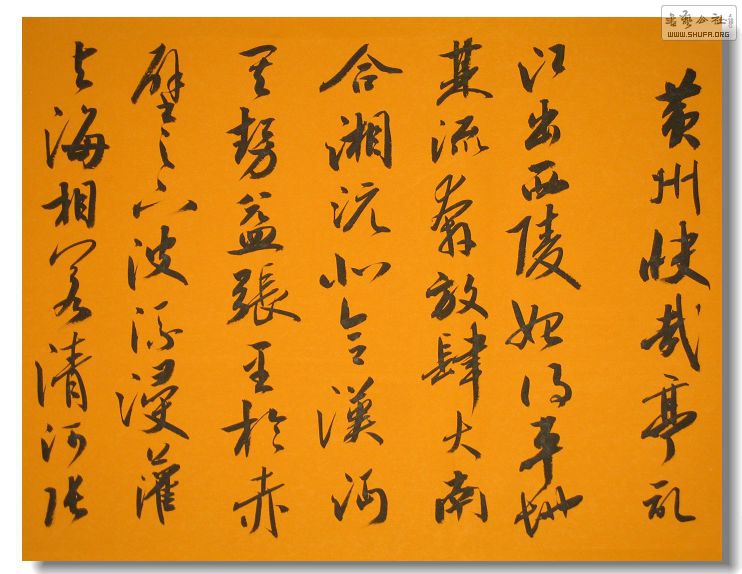 黄州快哉亭記
江出西陵始得平地
其流奔放肆大南
合湘沅北合漢沔
其勢益張至於赤
壁之下波流浸灌
与海相若清河張
書藝公社
WWW.SHUFA.ORG